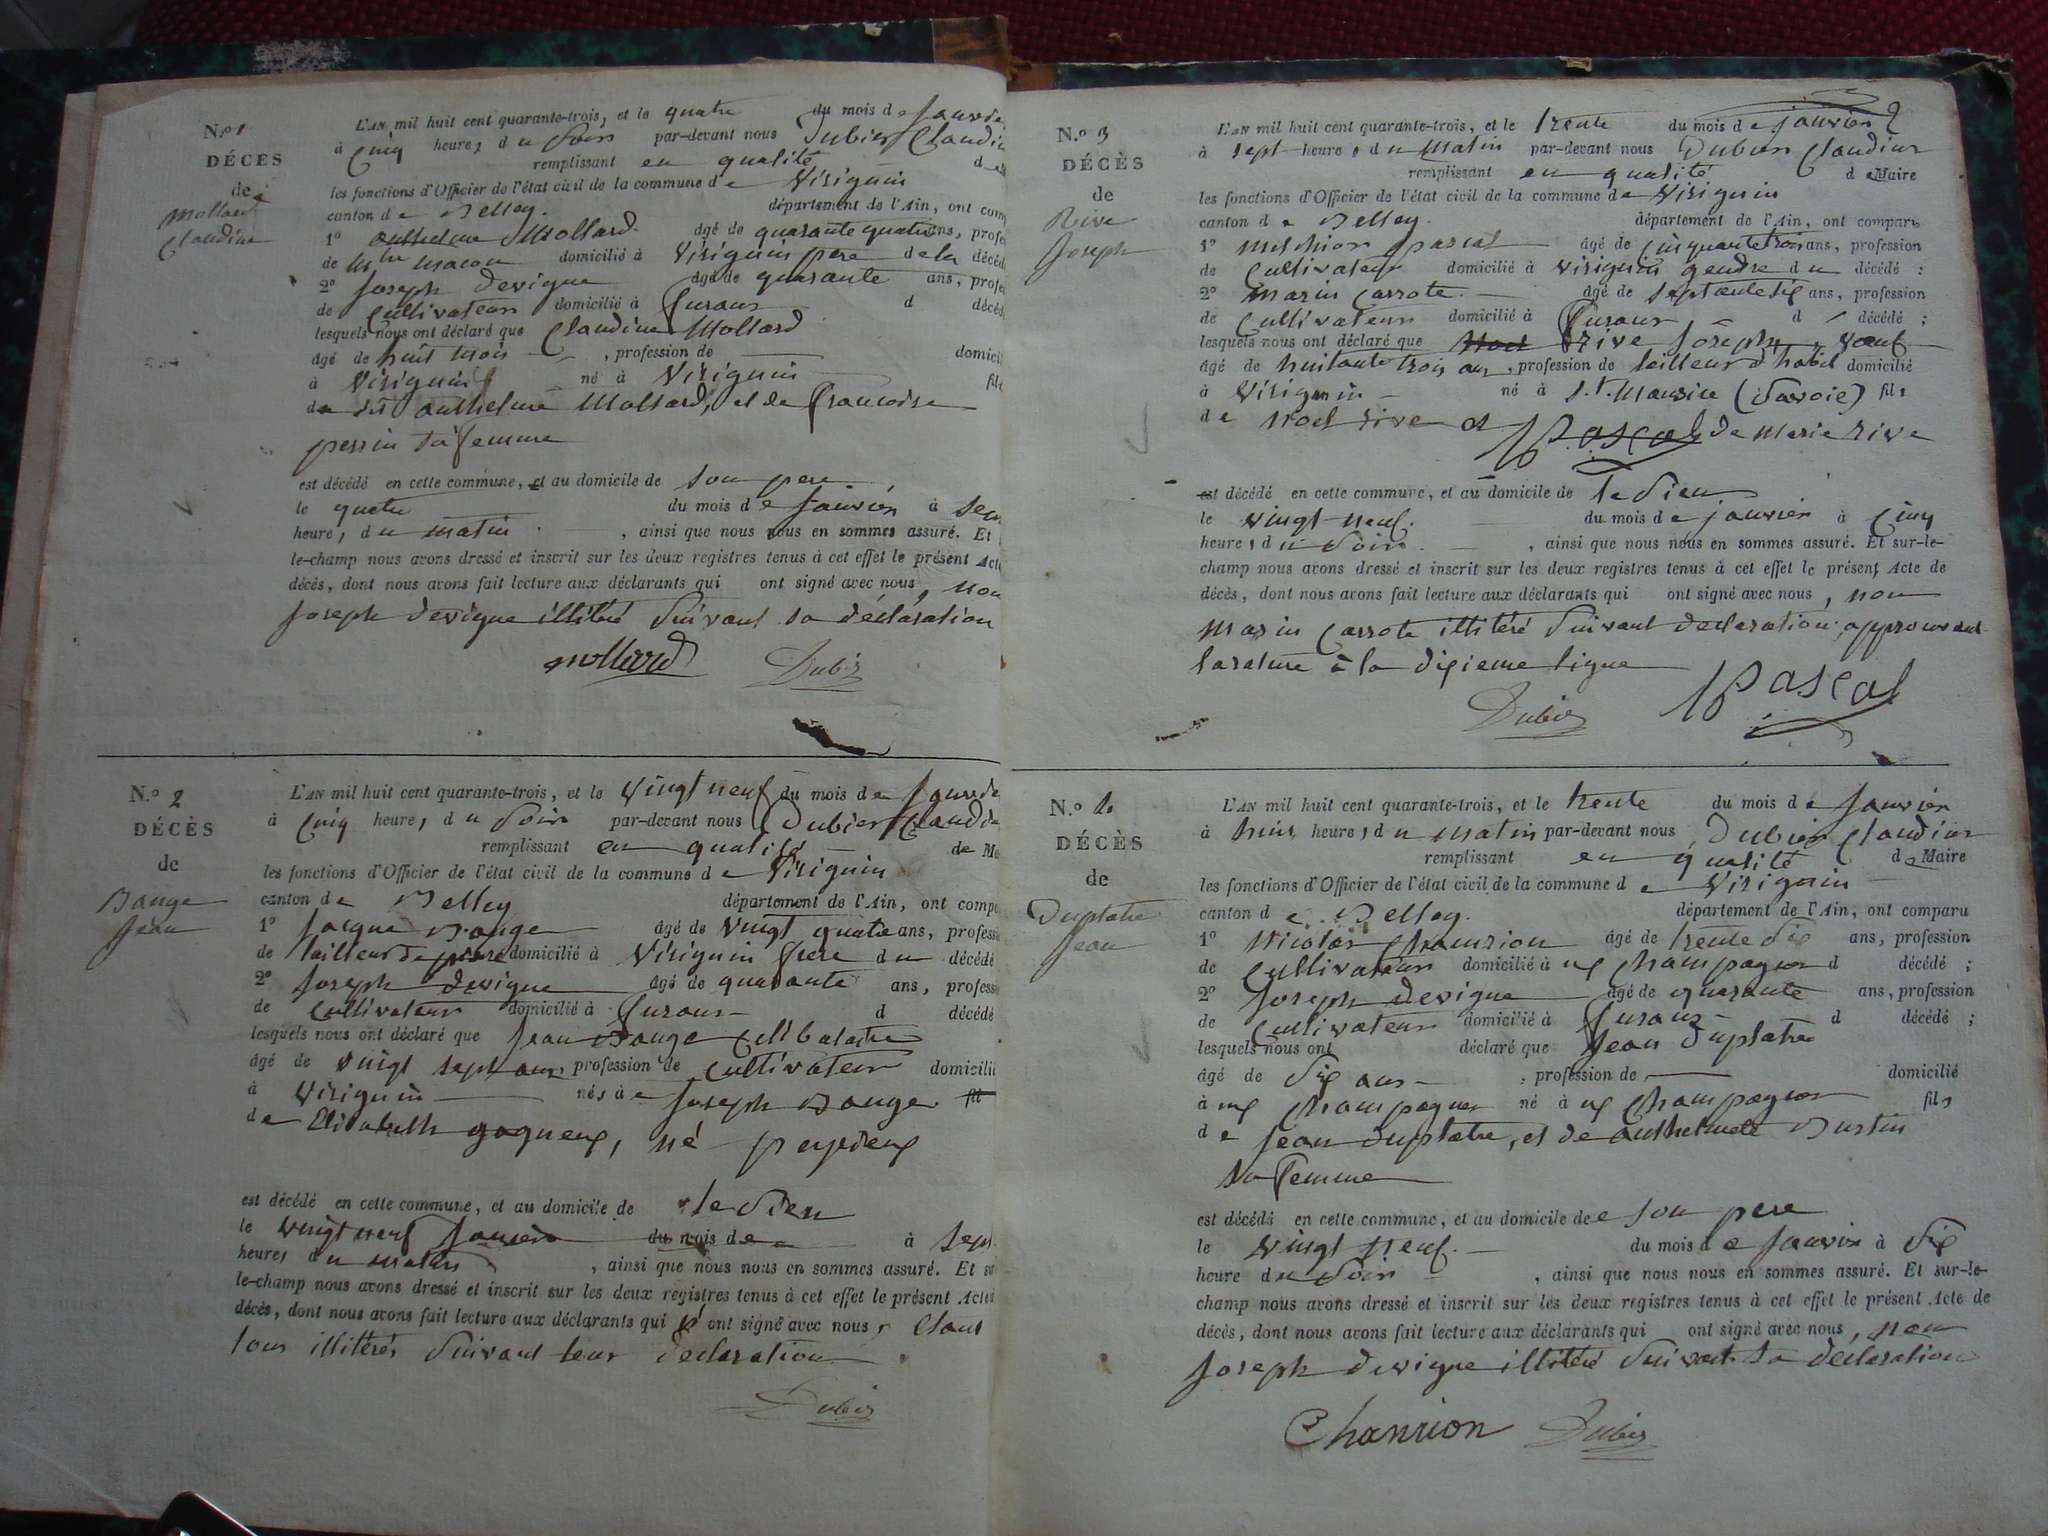 N.º 1
DÉCES
de
Mollard
Claudine
L'AN mil huit cent quarante-trois, et le quatre du mois de Janvie
à Cinq heures du Soir par-devant nous Dubier Claudiu
remplissant en qualité de
les fonctions d'Officier de l'état civil de la commune de Virignin
canton de Belley. département de l'Ain, ont com
1º anthelme Mollard âgé de quarante quatre ans, profes
de mtre macon domicilié à Virignin pere de la décéd
2º Joseph devigne âgé de quarante ans, profes
de Cultivateur domicilié à Luraur d décéd
lesquels nous ont déclaré que Claudine Mollard
âgé de huit mois , profession de domicil
à Virignin né à Virignin fil
du dit anthelme Mollard, et de francoise
perrin sa femme
est décédé en cette commune, et au domicile de son pere
le quatre du mois de Janvier à Sep
heure, du matin , ainsi que nous nous en sommes assuré. Et
le-champ nous avons dressé et inscrit sur les deux registres tenus à cet effet le présent Acte
décès, dont nous avons fait lecture aux déclarants qui ont signé avec nous, non
Joseph devigne illitéré suivant sa déclaration
mollard Dubier
N.º 2
DÉCÈS
de
Bange
Jean
L'AN mil huit cent quarante-trois, et le vingt neuf du mois de Janvie
à Cinq heures du Soir par-devant nous Dubier Claudi
remplissant en qualité de Ma
les fonctions d'Officier de l'état civil de la commune de Virignin
canton de Belley département de l'Ain, ont comp
1º Jacque Bange âgé de vingt quatre ans, profess
de tailleur de pierre domicilié à Virignin frere du décédé
2º Joseph devigne âgé de quarante ans, profess
de cultivateur domicilié à Luraur d décédé
lesquels nous ont déclaré que Jean Bange Celibataire
âgé de vingt sept ans profession de cultivateur domicili
à Virignin nés de Joseph Bange fil
de Elisabeth gogneux, né peyrieux
est décédé en cette commune, et au domicile de le Sien
le vingt neuf Janvier du mois de à Sept
heures du matin , ainsi que nous nous en sommes assuré. Et su
le-champ nous avons dressé et inscrit sur les deux registres tenus à cet effet le présent Acte
décès, dont nous avons fait lecture aux déclarants qui n'ont signé avec nous, étant
tous illitérés suivant leur déclaration
Dubier
N.º 3
DÉCÈS
de
Rive
Joseph
L'AN mil huit cent quarante-trois, et le trente du mois de janvier
à sept heures du matin par-devant nous Dubier Claudius
remplissant en qualité de Maire
les fonctions d'Officier de l'état civil de la commune de Virignin
canton de Belley. département de l'Ain, ont comparu
1º melchior pascal âgé de cinquante trois ans, profession
de Cultivateur domicilié à Virignin gendre du décédé :
2º marin Carrote. âgé de septante six ans, profession
de Cultivateur domicilié à Luraur d décédé ;
lesquels nous ont déclaré que Noel Rive Joseph, veuf
âgé de huitante trois ans, profession de tailleur d'habit domicilié
à Virignin né à St. Maurice (Savoie) fils
de Noel rive et Pascal de Marie rive
est décédé en cette commune, et au domicile de le Sien
le vingt neuf. du mois de janvier à Cinq
heures du Soir. , ainsi que nous nous en sommes assuré. Et sur-le-
champ nous avons dressé et inscrit sur les deux registres tenus à cet effet le présent Acte de
décès, dont nous avons fait lecture aux déclarants qui ont signé avec nous, non
Marin Carrote illitéré suivant declaration, approuvant
la rature à la dixieme ligne
Dubier Pascal
N.º 4
DÉCÈS
de
Duplatre
Jean
L'AN mil huit cent quarante-trois, et le trente du mois de Janvier
à huit heures du matin par-devant nous Dubier Claudius
remplissant en qualité de Maire
les fonctions d'Officier de l'état civil de la commune de Virignin
canton de Belley. département de l'Ain, ont comparu
1º Nicolas Chanrion âgé de trente six ans, profession
de Cultivateur domicilié à Champagner d décédé ;
2º Joseph devigne âgé de quarante ans, profession
de Cultivateur domicilié à Luraur d décédé ;
lesquels nous ont déclaré que Jean Duplatre
âgé de Six ans , profession de domicilié
à Champagner né à Champagner fils
de Jean duplatre, et de anthelmete Burtin
sa femme
est décédé en cette commune, et au domicile de son pere
le vingt neuf. du mois de Janvier à Six
heure du Soir , ainsi que nous nous en sommes assuré. Et sur-le-
champ nous avons dressé et inscrit sur les deux registres tenus à cet effet le présent Acte de
décès, dont nous avons fait lecture aux déclarants qui ont signé avec nous, non
Joseph devigne illitéré suivant sa declaration
Chanrion Dubier